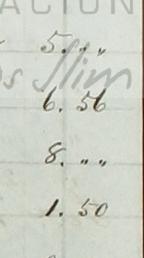 ACION
5. " "
os Slim
6. 56
8. " "
1. 50